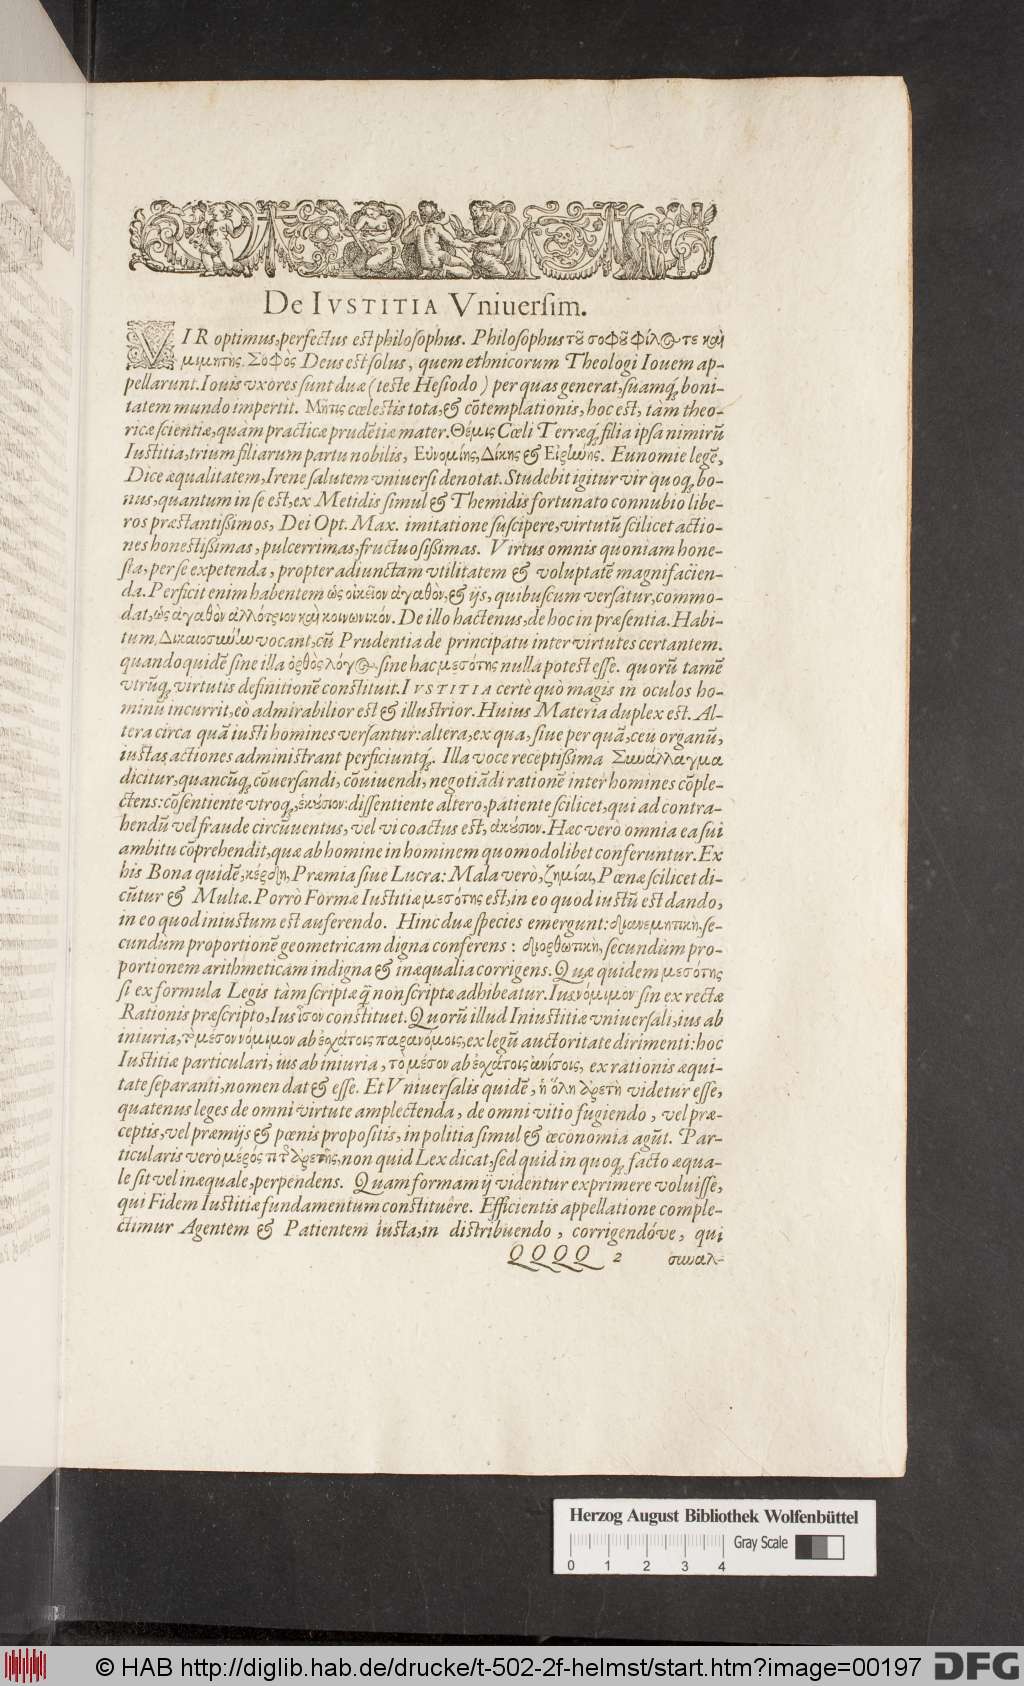 De IVSTITIA Vniuersim.
VIR optimus, perfectus est philosophus. Philosophus τοῦ σοφοῦ φίλος τε καὶ
μιμητής. Σοφὸς Deus est solus, quem ethnicorum Theologi Iouem ap-
pellarunt. Iouis vxores sunt duæ (teste Hesiodo) per quas generat, suamq; boni-
tatem mundo impertit. Μῆτις cœlestis tota, & cōtemplationis, hoc est, tam theo-
ricæ scientiæ, quàm practicæ prudētiæ mater. Θέμις Cœli Terræq; filia ipsa nimirū
Iustitia, trium filiarum partu nobilis, Εὐνομίης, Δίκης & Εἰρήνης. Eunomie legē,
Dice æqualitatem, Irene salutem vniuersi denotat. Studebit igitur vir quoq; bo-
nus, quantum in se est, ex Metidis simul & Themidis fortunato connubio libe-
ros præstantißimos, Dei Opt. Max. imitatione suscipere, virtutū scilicet actio-
nes honestißimas, pulcerrimas, fructuosißimas. Virtus omnis quoniam hone-
sta, per se expetenda, propter adiunctam vtilitatem & voluptatē magni facien-
da. Perficit enim habentem ὡς οἰκεῖον ἀγαθὸν, & ijs, quibuscum versatur, commo-
dat, ὡς ἀγαθὸν ἀλλότριον καὶ κοινωνικόν. De illo hactenus, de hoc in præsentia. Habi-
tum, Δικαιοσύνην vocant, cū Prudentia de principatu inter virtutes certantem.
quando quidē sine illa ὀρθὸς λόγος, sine hac μεσότης nulla potest esse. quorū tamē
vtrūq; virtutis definitionē constituit. IVSTITIA certè quò magis in oculos ho-
minū incurrit, eò admirabilior est & illustrior. Huius Materia duplex est. Al-
tera circa quā iusti homines versantur: altera, ex qua, siue per quā, ceu organū,
iustas actiones administrant perficiuntq;. Illa voce receptißima Συνάλλαγμα
dicitur, quancūq; cōuersandi, cōuiuendi, negotiādi rationē inter homines cōple-
ctens: cōsentiente vtroq;, ἑκούσιον: dissentiente altero, patiente scilicet, qui ad contra-
hendū vel fraude circūuentus, vel vi coactus est, ἀκούσιον. Hæc verò omnia ea sui
ambitu cōprehendit, quæ ab homine in hominem quomodolibet conferuntur. Ex
his Bona quidē, κέρδη, Præmia siue Lucra: Mala verò, ζημίαι, Pœnæ scilicet di-
cūtur & Multæ. Porrò Formæ Iustitiæ μεσότης est, in eo quod iustū est dando,
in eo quod iniustum est auferendo. Hinc duæ species emergunt: διανεμητικὴ, se-
cundùm proportionē geometricam digna conferens: διορθωτικὴ, secundùm pro-
portionem arithmeticam indigna & inæqualia corrigens. Quæ quidem μεσότης
si ex formula Legis tàm scriptæ q̃ non scriptæ adhibeatur. Ius νόμιμον sin ex rectæ
Rationis præscripto, Ius ἴσον constituet. Quorū illud Iniustitiæ vniuersali, ius ab
iniuria, τὸ μέσον νόμιμον ab ἐσχάτοις παρανόμοις, ex legū auctoritate dirimenti: hoc
Iustitiæ particulari, ius ab iniuria, τὸ μέσον ab ἐσχάτοις ἀνίσοις, ex rationis æqui-
tate separanti, nomen dat & esse. Et Vniuersalis quidē, ἡ ὅλη ἀρετὴ videtur esse,
quatenus leges de omni virtute amplectenda, de omni vitio fugiendo, vel præ-
ceptis, vel præmijs & pœnis propositis, in politia simul & œconomia agūt. Par-
ticularis verò μέρός τι τῆς ἀρετῆς, non quid Lex dicat, sed quid in quoq; facto æqua-
le sit vel inæquale, perpendens. Quam formam ij videntur exprimere voluisse,
qui Fidem Iustitiæ fundamentum constituêre. Efficientis appellatione comple-
ctimur Agentem & Patientem iusta, in distribuendo, corrigendóve, qui
QQQQ 2 συναλ-
Herzog August Bibliothek Wolfenbüttel
Gray Scale
0 1 2 3 4
© HAB http://diglib.hab.de/drucke/t-502-2f-helmst/start.htm?image=00197 DFG